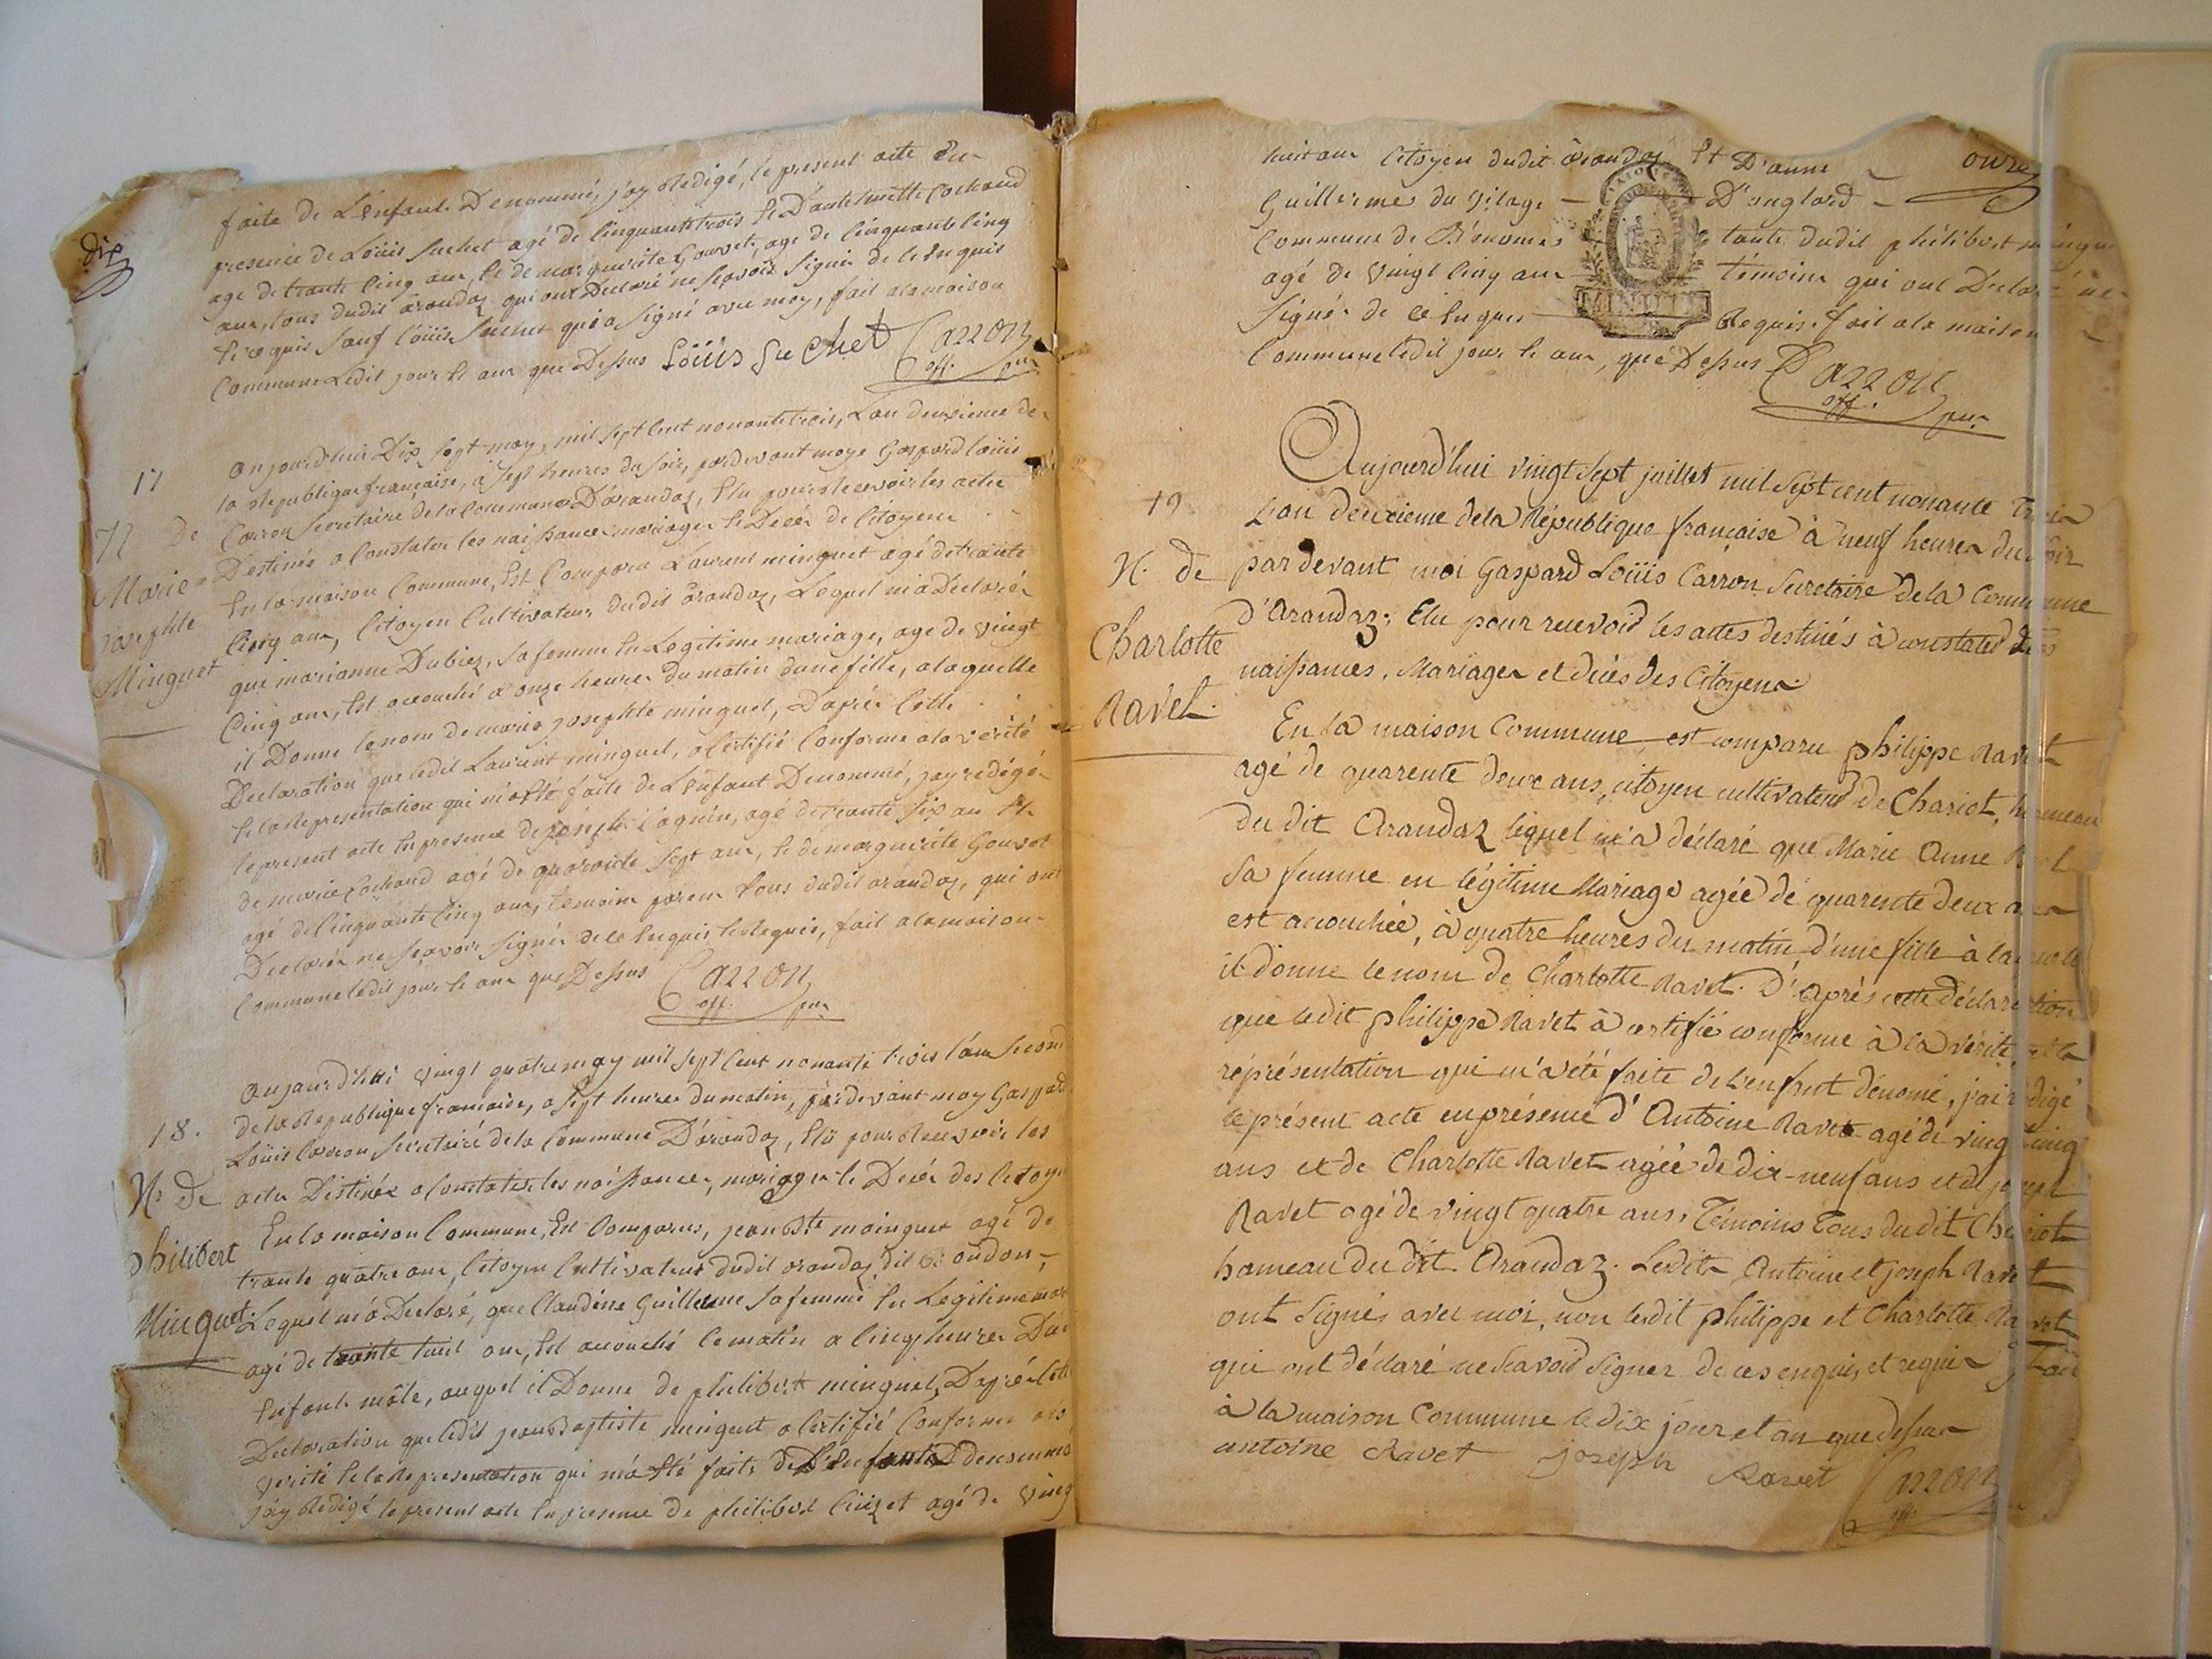 dix
faite de L'enfant Denommé, j'ay Redigé, le present acte En
presence de Loüis Suchet agé de Cinquante trois Et D'antelmette Cochand
age de trante Cinq ans, Et de marguerite Gouvet, age de Cinquante Cinq
ans, tous dudit arandaz qui ont Declaré ne sçavoir Signer de ce Enquis
Et requis sauf Loüis Suchet qui a signé avec moy, fait a la maison
Commune Ledit jour Et an que Dessus Loüis Suchet Carron
off. pur
17
N de
Marie
Josephte
Minguet
aujourd'hui Dix Sept may, mil sept Cent nonante trois, L'an deuxieme de
la Republique française, a sept heures du soir, pardevant moye Gaspard Loüis
Carron Secretaire de la Commune D'arandaz, Elu pour Recevoir les actes
Destinés a Constater les naissances mariages Et Decés de Citoyens
En la maison Commune, Est Comparu Laurent minguet agé de trante
Cinq ans, Citoyen Cultivateur dudit arandaz, Lequel m'a Declaré
que marianne Dubiez, sa femme En Legitime mariage, age de vingt
Cinq ans, Est accouché a onze heures du matin d'une fille, a laquelle
il Donne le nom de marie josephte minguet, D'aprés Cette
Declaration que ledit Laurent minguet, a Certifié Conforme a la verité
Et la Representation qui m'a Eté faite de L'enfant Denommé, j'ay redigé
le present acte En presence de joseph Cagnin, agé de trante six an Et
de marie Cochand agé de quarante sept ans, Et de marguerite Gouvet
agé de Cinquante Cinq ans, temoins parens tous dudit arandaz, qui ont
Declaré ne sçavoir signer de ce Enquis Et Requis, fait a la maison
Commune ledit jour Et an que Dessus Carron
off. pur
18.
N. de
Philibert
Minguet
aujourd'hui vingt quatre may mil sept Cent nonante trois l'an second
de la Republique francaise, a sept heures du matin, pardevant moy Gaspard
Loüis Carron Secretaire de la Commune D'arandaz, Elü pour Recevoir les
actes Destinés a Constater les naissances, mariages Et Decés des Citoy
En la maison Commune, Est Comparus, jean Bte minguet agé de
trante quatre ans, Citoyen Cultivateur dudit arandaz
Lequel m'a Declaré, que Claudine Guillerme sa femme En Legitime mar
agé de trante huit ans, Est accouché le matin a Cinq heures D'un
Enfant mâle, auquel il Donne de philibert minguet, D'aprés Cette
Declaration que ledit jean Baptiste minguet a Certifié Conforme a la
verité Et la Representation qui m'a Eté faite de L'Enfant denommé
j'ay Redigé le present acte En presence de philibert agé de vingt
onze
huit ans Citoyen dudit arandaz Et D'anne
Guillermes du Vilage D'anglard
Commune de tante dudit philibert mingue
agé de vingt Cinq ans témoins qui ont Declaré ne
signer de ce Enquis Requis. fait a la maison
Commune ledit jour Et an, que Dessus Carron
off. pur
MINUTE
19
N. de
Charlotte
Ravet.
Aujourd'hui vingt sept juillet mil sept cent nonante Trois
L'an deuxieme de la République française à neuf heures du soir
par devant moi Gaspard Loüis Carron Secretaire de la Commune
d'Arandaz; Elu pour recevoir les actes destinés à constater des
naissances, Mariages et décès des Citoyens.
En la maison Commune, est comparu philippe Ravet
agé de quarente deux ans, citoyen cultivateur de Chariot, hameau
du dit Arandaz lequel m'a déclaré que Marie Anne
Sa femme en légitime Mariage agée de quarente deux ans
est acouchée, à quatre heures du matin, d'une fille à laquelle
il donne le nom de Charlotte Ravet. D'après cette déclaration
que ledit philippe Ravet à certifié conforme à la vérité et la
représentation qui m'a été faite de l'enfant dénomé, j'ai rédigé
le présent acte en présence d'Antoine Ravet agé de vingt Cinq
ans et de Charlotte Ravet agée de dix-neuf ans et de joseph
Ravet agé de vingt quatre ans, Témoins Tous du dit Chariot
hameau du dit Arandaz. Lesdits Antoine et joseph Ravet
ont signés avec moi, non lesdit philippe et Charlotte Ravet
qui ont déclaré ne sçavoir Signer de ces enquis, et requis Fait
à la maison Commune le dix jour et an que dessus
antoine Ravet joseph Ravet Carron